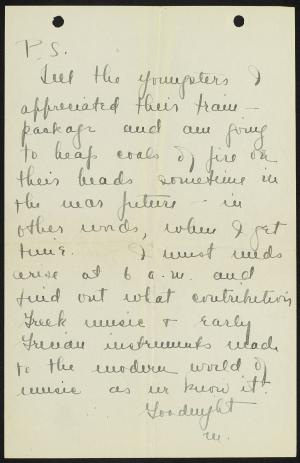 P. S.
Tell the youngsters I
appreciated their train-
package and am going
to heap coals of fire on
their heads sometime in
the near future - in
other words, when I get
time. I must needs
arise at 6 a.m. and
find out what contributions
Greek music & Early
Grecian instruments made
to the modern world of
music as we know it!
Goodnight
M.